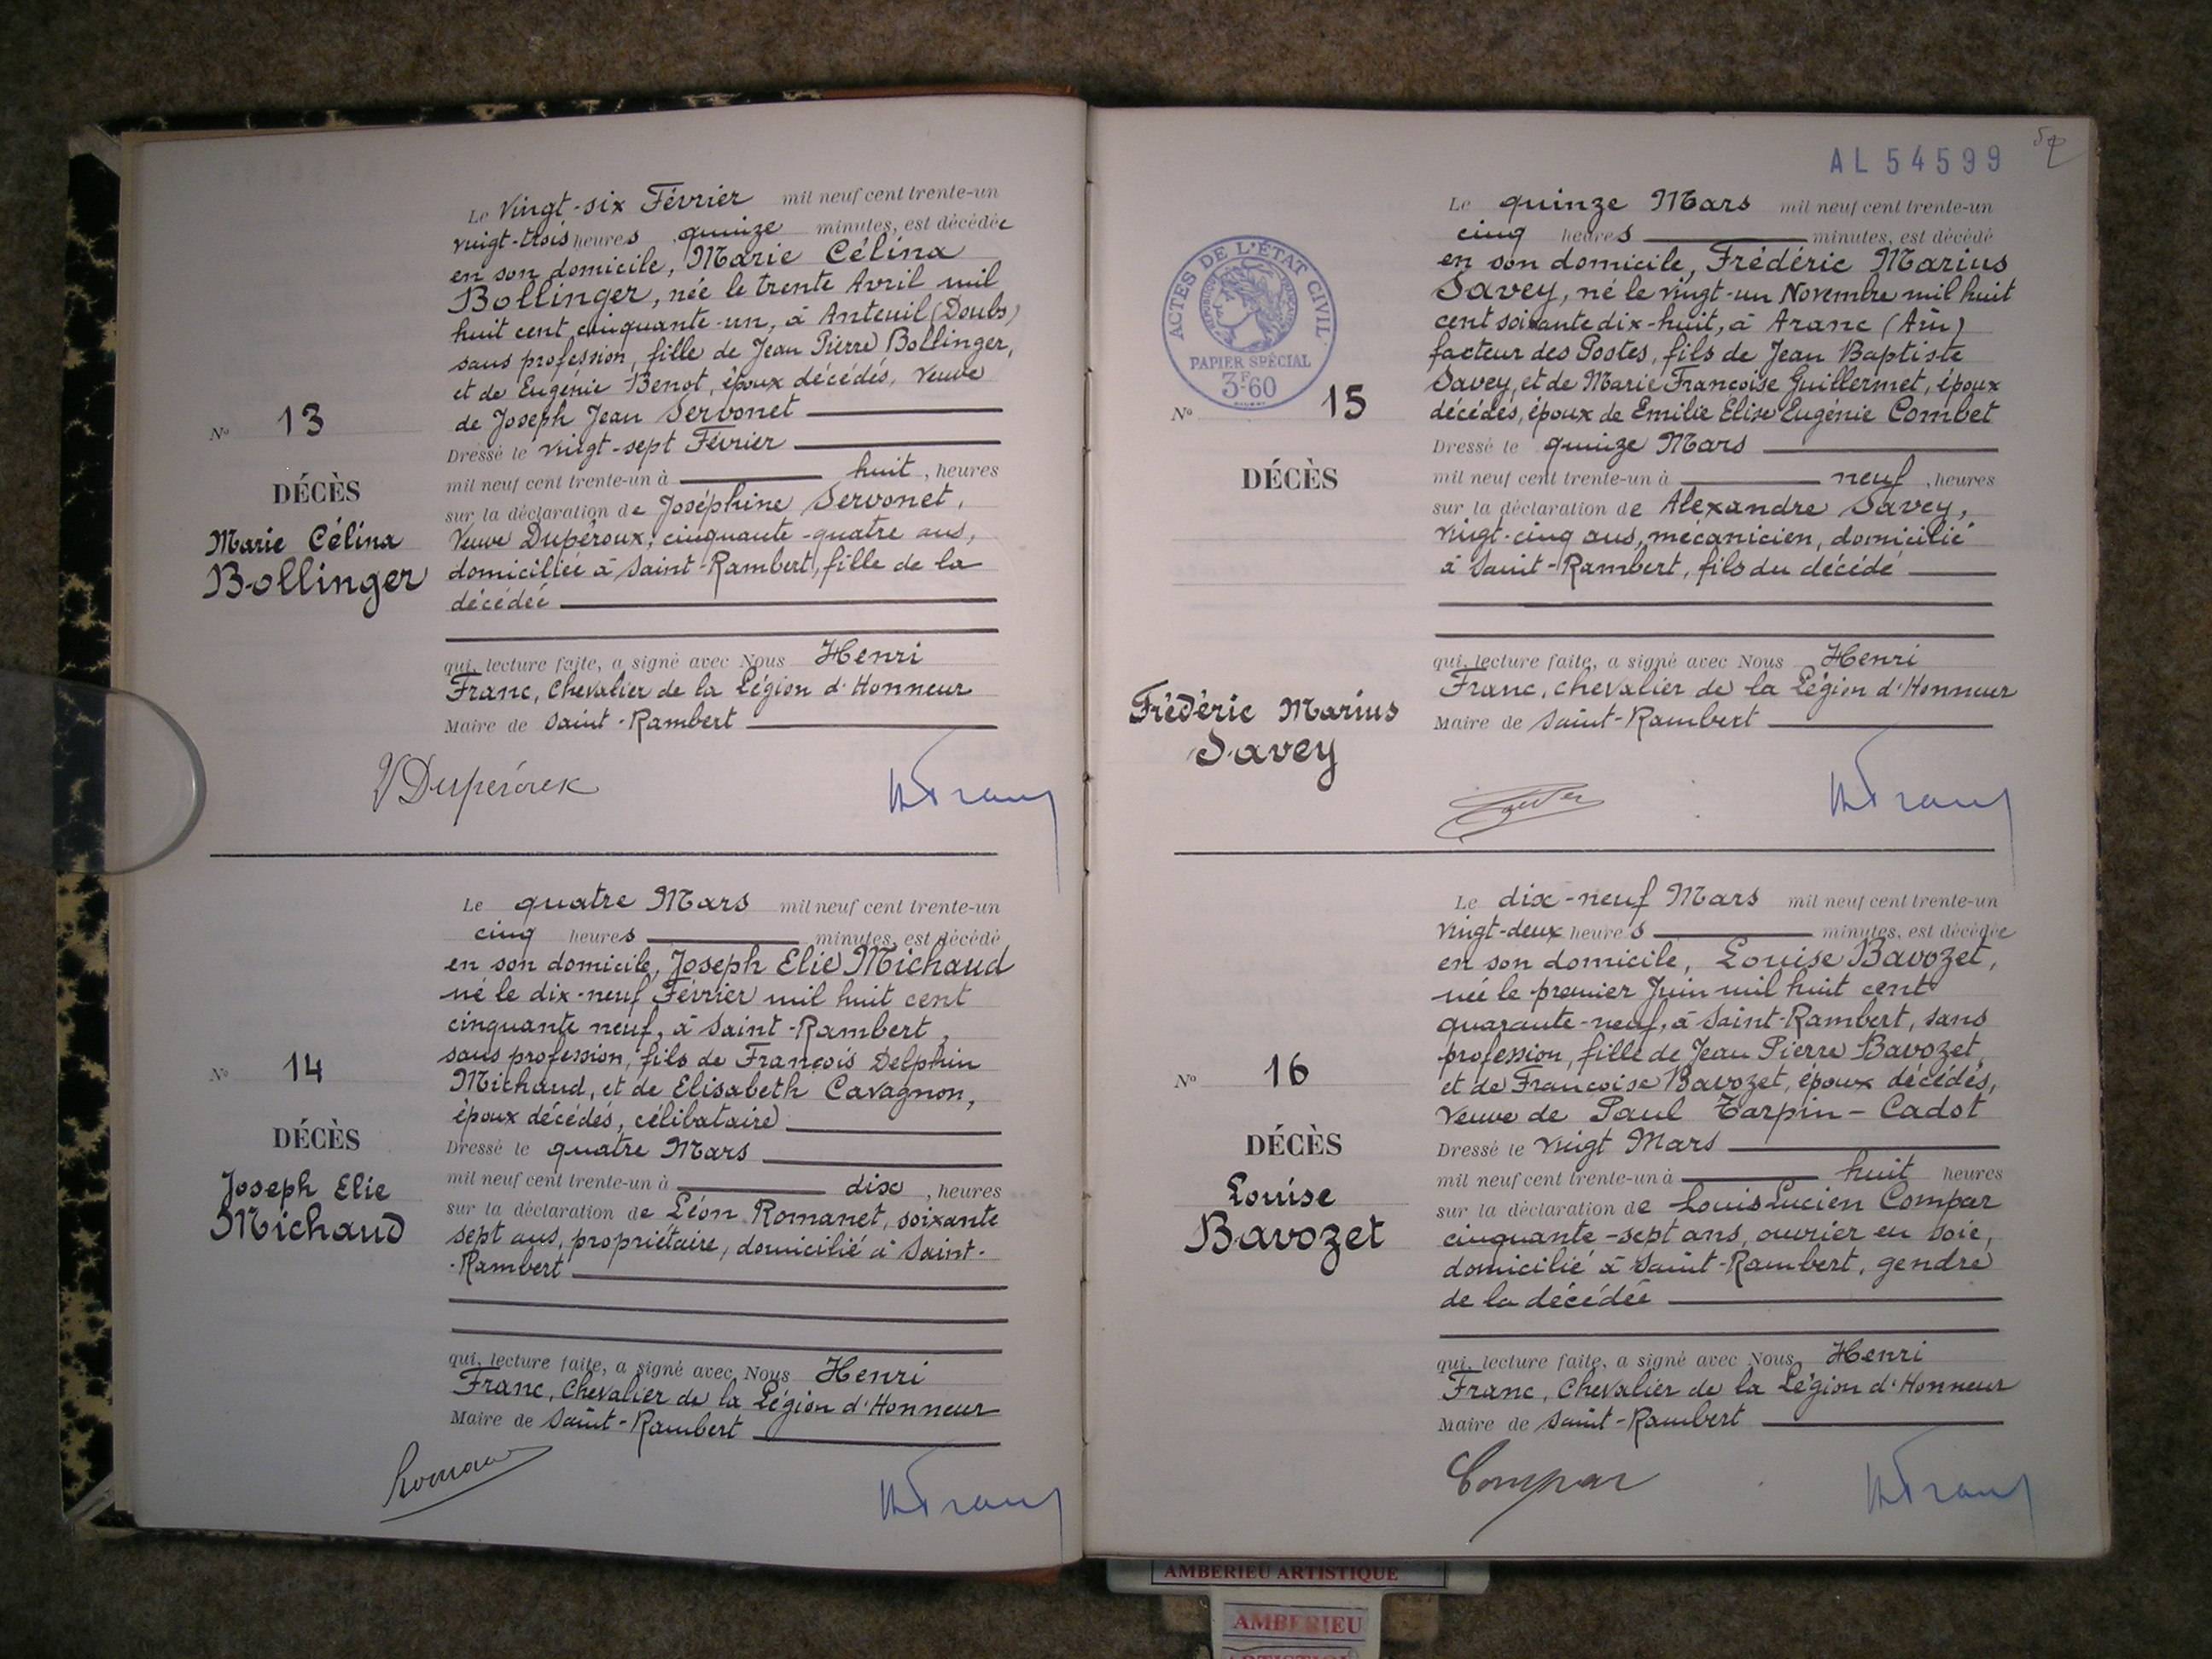 Le Vingt-six Février mil neuf cent trente-un
vingt-trois heures quinze minutes, est décédée
en son domicile, Marie Célina
Bollinger, née le trente Avril mil
huit cent cinquante-un, à Anteuil (Doubs)
sans profession, fille de Jean Pierre Bollinger,
et de Eugénie Benot, époux décédés, veuve
de Joseph Jean Servonet
Dressé le vingt-sept Février
mil neuf cent trente-un à huit, heures
sur la déclaration de Joséphine Servonet,
Veuve Dupéroux, cinquante-quatre ans,
domiciliée à Saint-Rambert, fille de la
décédée
qui, lecture faite, a signé avec Nous Henri
Franc, Chevalier de la Légion d'Honneur
Maire de Saint-Rambert
No 13
DÉCÈS
Marie Célina
Bollinger
Le quatre Mars mil neuf cent trente-un
cinq heures minutes, est décédé
en son domicile, Joseph Elie Michaud
né le dix-neuf Février mil huit cent
cinquante neuf, à Saint-Rambert,
sans profession, fils de François Delphin
Michaud, et de Elisabeth Cavagnon,
époux décédés, célibataire
Dressé le quatre Mars
mil neuf cent trente-un à dix, heures
sur la déclaration de Léon Romanet, soixante
sept ans, propriétaire, domicilié à Saint-
-Rambert
qui, lecture faite, a signé avec Nous Henri
Franc, Chevalier de la Légion d'Honneur
Maire de Saint-Rambert
No 14
DÉCÈS
Joseph Elie
Michaud
AL 54599
ACTES DE L'ÉTAT CIVIL
PAPIER SPÉCIAL
3F60
Le quinze Mars mil neuf cent trente-un
cinq heures minutes, est décédé
en son domicile, Frédéric Marius
Savey, né le vingt-un Novembre mil huit
cent soixante dix-huit, à Aranc (Ain)
facteur des Postes, fils de Jean Baptiste
Savey, et de Marie Françoise Guillermet, époux
décédés, époux de Emilie Elise Eugénie Combet
Dressé le quinze Mars
mil neuf cent trente-un à neuf, heures
sur la déclaration de Alexandre Savey,
vingt-cinq ans, mécanicien, domicilié
à Saint-Rambert, fils du décédé
qui, lecture faite, a signé avec Nous Henri
Franc, chevalier de la Légion d'Honneur
Maire de Saint-Rambert
No 15
DÉCÈS
Frédéric Marius
Savey
Le dix-neuf Mars mil neuf cent trente-un
vingt-deux heures minutes, est décédée
en son domicile, Louise Bavozet,
née le premier Juin mil huit cent
quarante-neuf, à Saint-Rambert, sans
profession, fille de Jean Pierre Bavozet,
et de Françoise Bavozet, époux décédés,
veuve de Paul Tarpin-Cadot
Dressé le vingt Mars
mil neuf cent trente-un à huit heures
sur la déclaration de Louis Lucien Compar
cinquante-sept ans, ouvrier en soie,
domicilié à Saint-Rambert, gendre
de la décédée
qui, lecture faite, a signé avec Nous Henri
Franc, Chevalier de la Légion d'Honneur
Maire de Saint-Rambert
Compar
No 16
DÉCÈS
Louise
Bavozet
AMBERIEU ARTISTIQUE
AMBERIEU
ARTISTIQUE